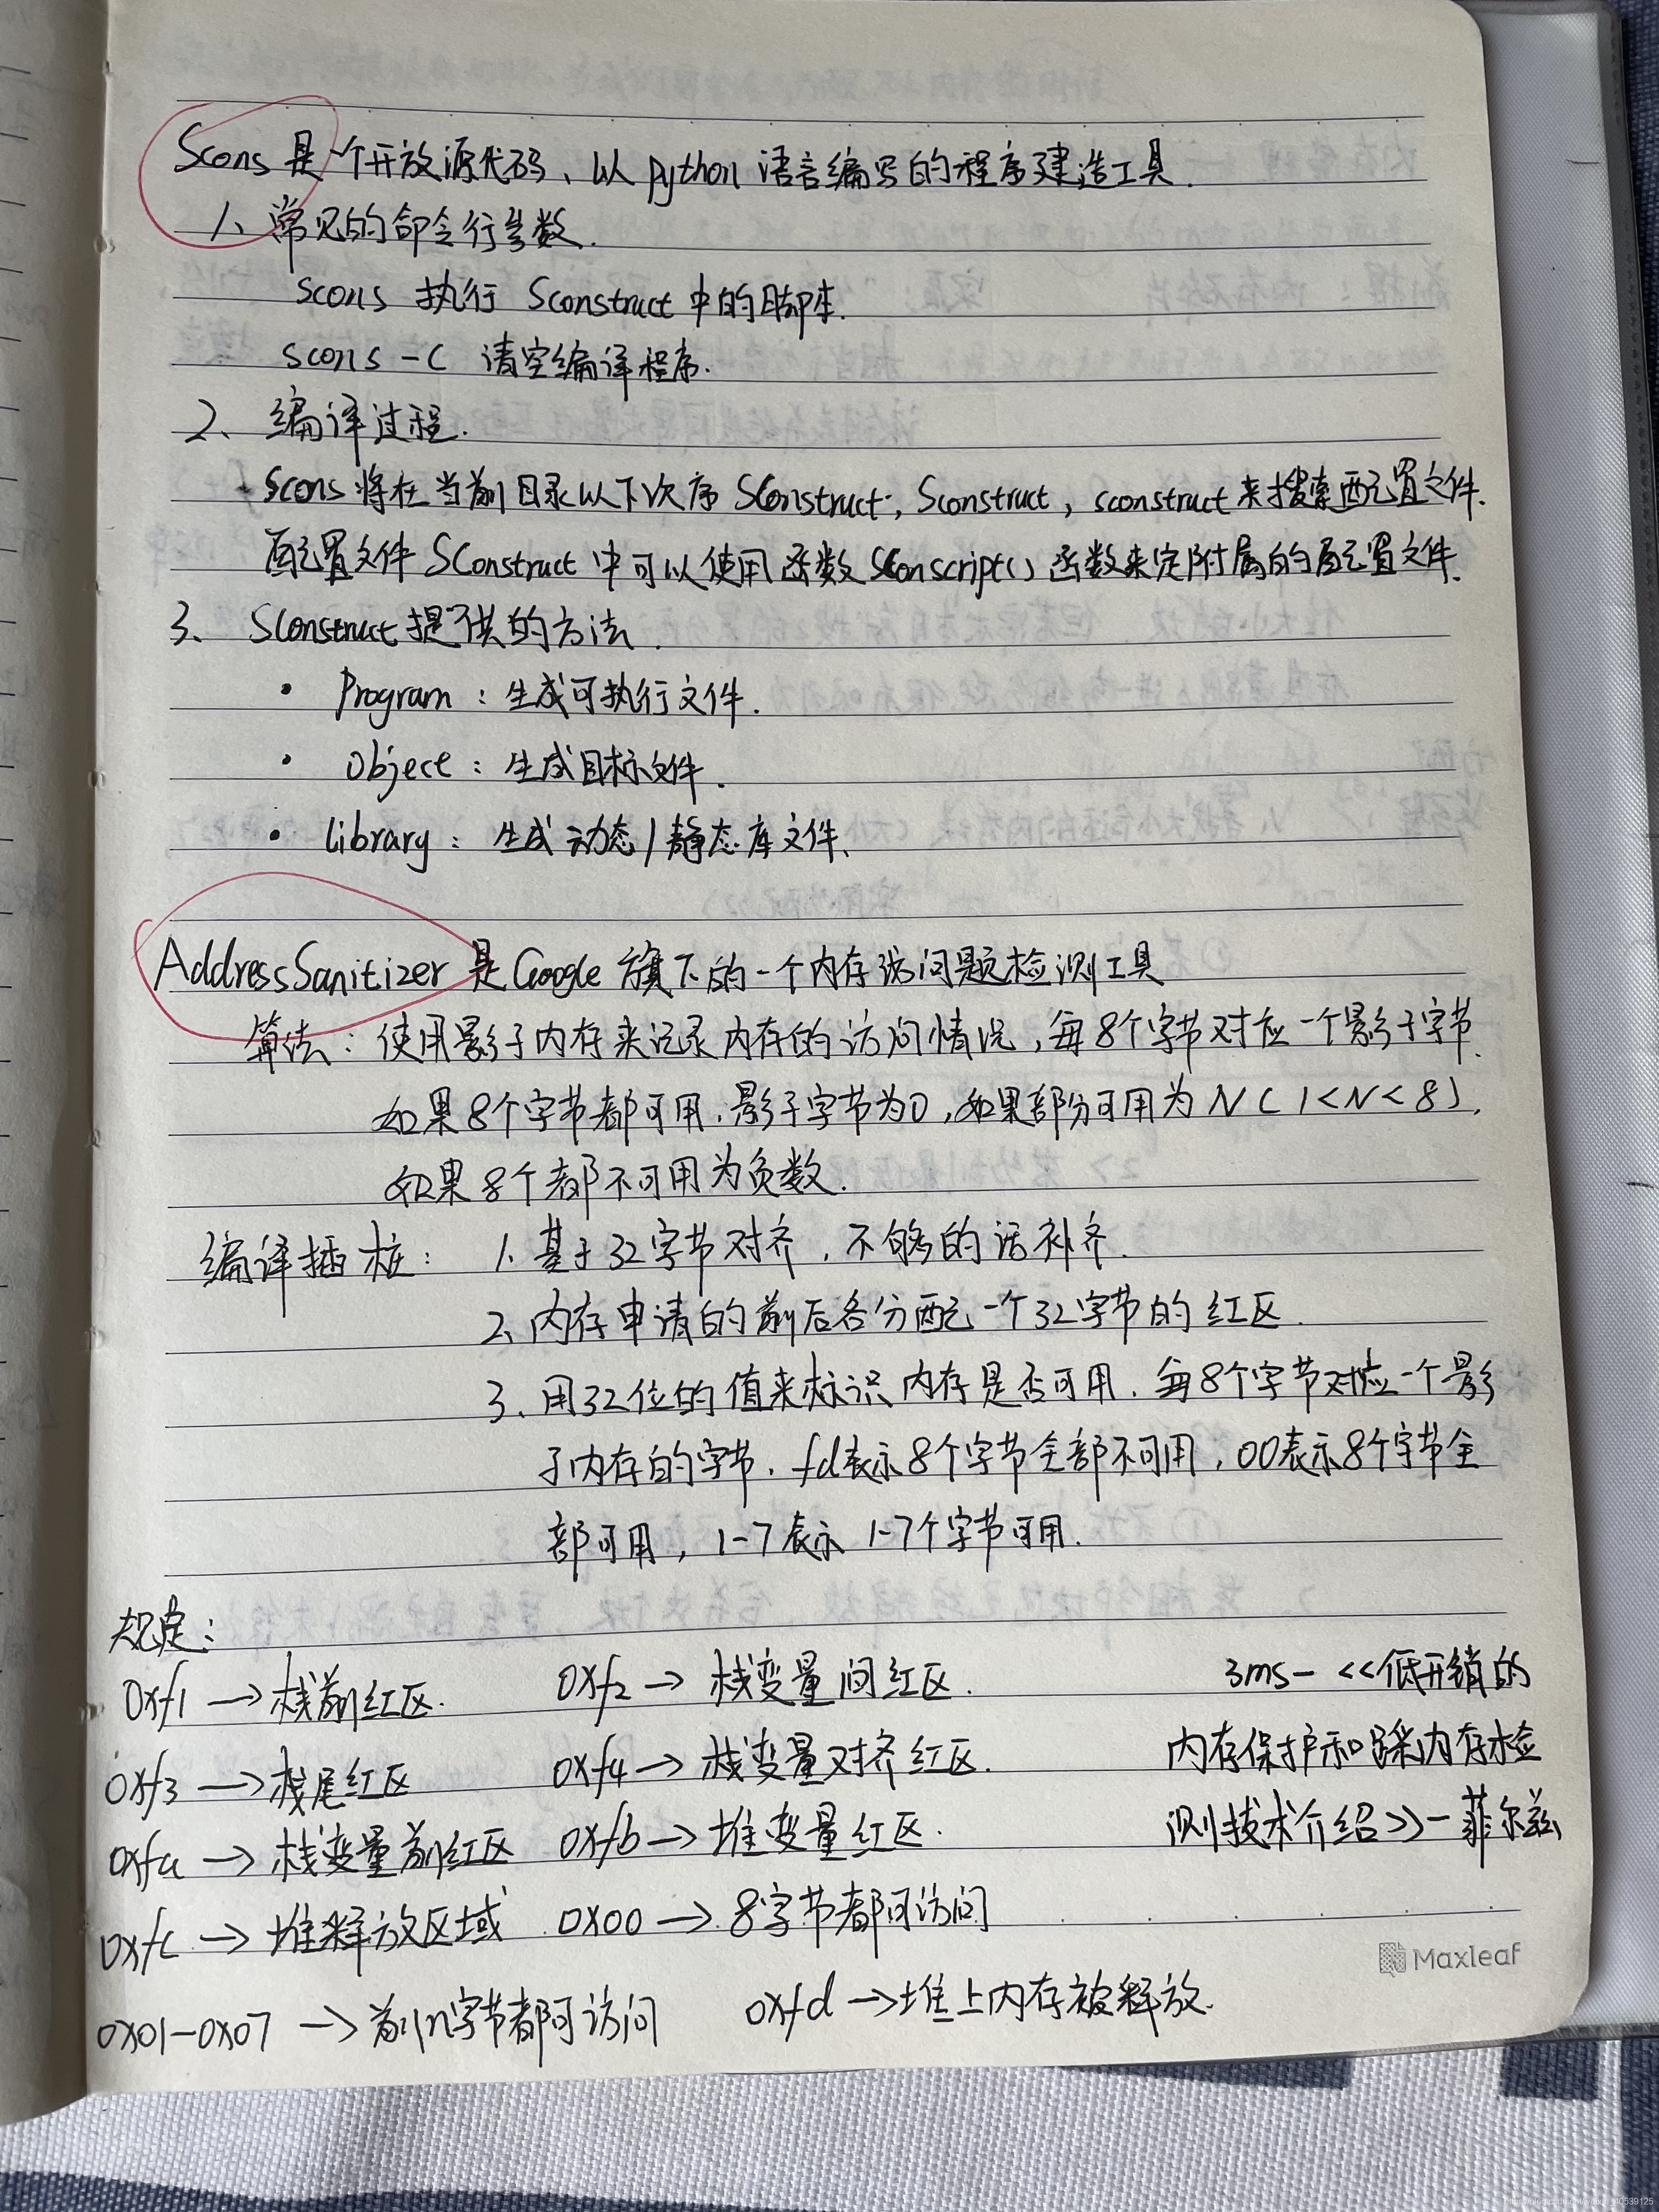 Scons 是一个开放源代码、以 python 语言编写的程序建造工具.
1、常见的命令行参数.
scons 执行 Sconstruct 中的脚本.
scons -c 清空编译程序.
2、编译过程.
Scons 将在当前目录以下次序 SConstruct, Sconstruct, sconstruct 来搜索配置文件.
配置文件 SConstruct 中可以使用函数 SConscript() 函数来定附属的配置文件.
3、SConstruct 提供的方法.
· Program: 生成可执行文件.
· Object: 生成目标文件.
· library: 生成动态/静态库文件、
AddressSanitizer 是 Google 旗下的一个内存访问题检测工具
算法: 使用影子内存来记录内存的访问情况, 每8个字节对应一个影子字节.
如果8个字节都可用, 影子字节为0, 如果部分可用为 N (1<N<8),
如果8个都不可用为负数.
编译插桩: 1. 基于32字节对齐, 不够的话补齐.
2、内存申请的前后各分配一个32字节的红区.
3. 用32位的值来标识内存是否可用. 每8个字节对应一个影
子内存的字节. fd表示8个字节全部不可用, 00表示8个字节全
部可用, 1-7表示 1-7个字节可用.
规定:
0xf1 → 栈前红区. 0xf2 → 栈变量间红区. 3ms- <<低开销的
0xf3 → 栈尾红区 0xf4 → 栈变量对齐红区. 内存保护和踩内存检
0xfa → 栈变量前红区 0xfb → 堆变量红区. 测技术介绍>>-菲尔兹
0xfc → 堆释放区域 0x00 → 8字节都可访问
Maxleaf
0x01-0x07 → 前n字节都可访问 0xfd → 堆上内存被释放.